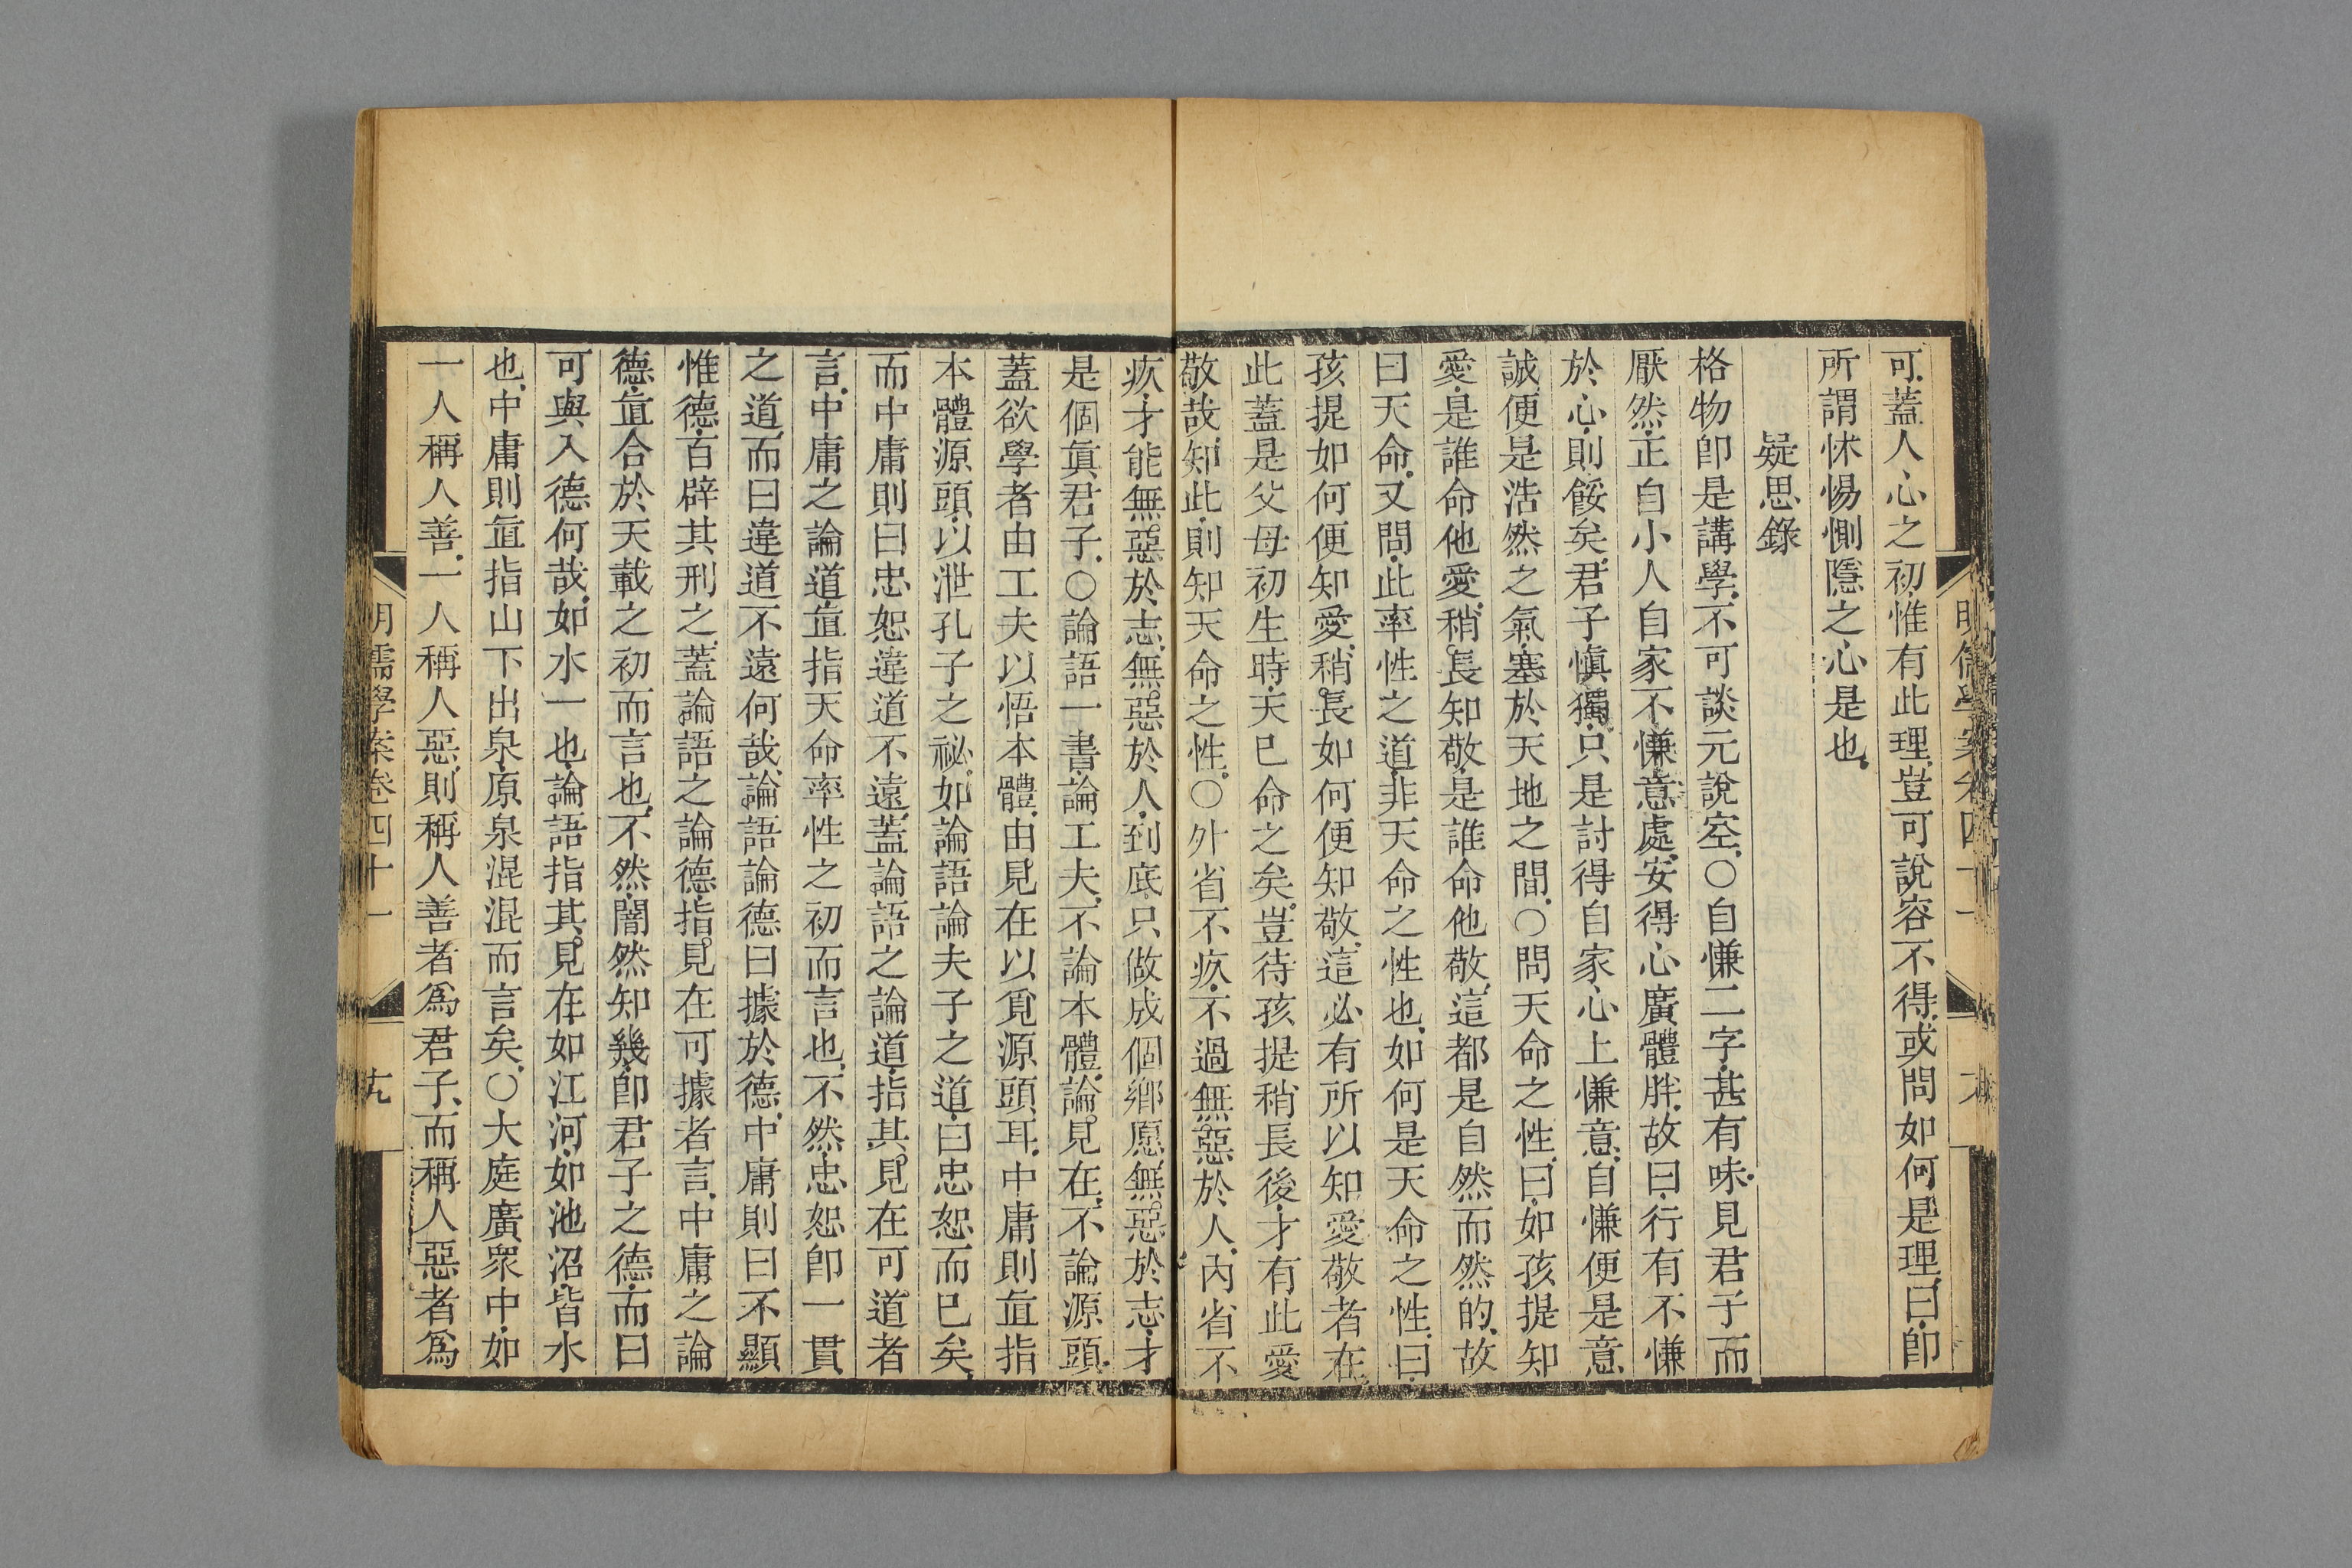 可蓋人心之初惟有此理豈可說容不得或問如何是理曰卽
所謂怵惕惻隱之心是也
疑思錄
格物卽是講學不可談元說空○自慊二字甚有味見君子而
厭然正自小人自家不慊意處安得心廣體胖故曰行有不慊
於心則餒矣君子愼獨只是討得自家心上慊意自慊便是意
誠便是浩然之氣塞於天地之間○問天命之性曰如孩提知
愛是誰命他愛稍長知敬是誰命他敬這都是自然而然的故
曰天命又問此率性之道非天命之性也如何是天命之性曰
孩提如何便知愛稍長如何便知敬這必有所以知愛敬者在
此蓋是父母初生時天已命之矣豈待孩提稍長後才有此愛
敬哉知此則知天命之性○外省不疚不過無惡於人內省不
疚才能無惡於志無惡於人到底只做成個鄉愿無惡於志才
是個眞君子○論語一書論工夫不論本體論見在不論源頭
蓋欲學者由工夫以悟本體由見在以覓源頭耳中庸則直指
本體源頭以泄孔子之祕如論語論夫子之道曰忠恕而已矣
而中庸則曰忠恕違道不遠蓋論語之論道指其見在可道者
言中庸之論道直指天命率性之初而言也不然忠恕卽一貫
之道而曰違道不遠何哉論語論德曰據於德中庸則曰不顯
惟德百辟其刑之蓋論語之論德指見在可據者言中庸之論
德直合於天載之初而言也不然闇然知幾卽君子之德而曰
可與入德何哉如水一也論語指其見在如江河如池沼皆水
也中庸則直指山下出泉原泉混混而言矣○大庭廣衆中如
一人稱人善一人稱人惡則稱人善者爲君子而稱人惡者爲
明儒學案卷四十一